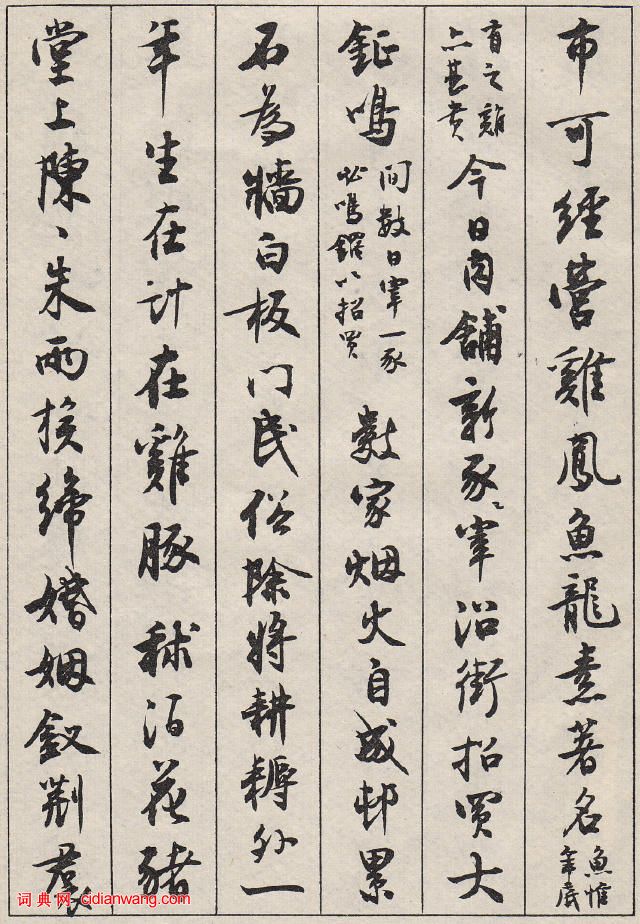 布可經營雞鳳魚龍素著名魚惟年底
有之雞亦甚貴今日肉舖新豕宰沿街招買大
鉦鳴間數日宰一豕必鳴鑼以招買數家烟火自成邨累
石為牆白板门民俗除將耕耨外一
年生在計在雞豚秫酒花豬
堂上陳〻朱兩族締婚姻釵荆裠
词典网 cidianwang.com